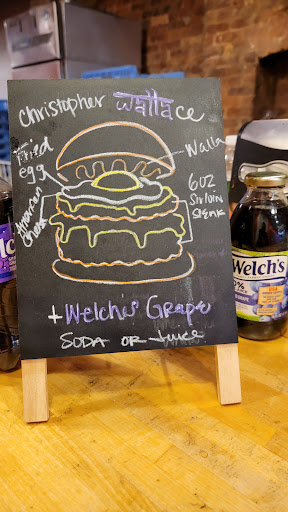 Christopher Wallace
Fried
egg
American
cheese
Walla
6oz
Sirloin
Steak
+ Welch's Grape
SODA OR Juice
Welch's